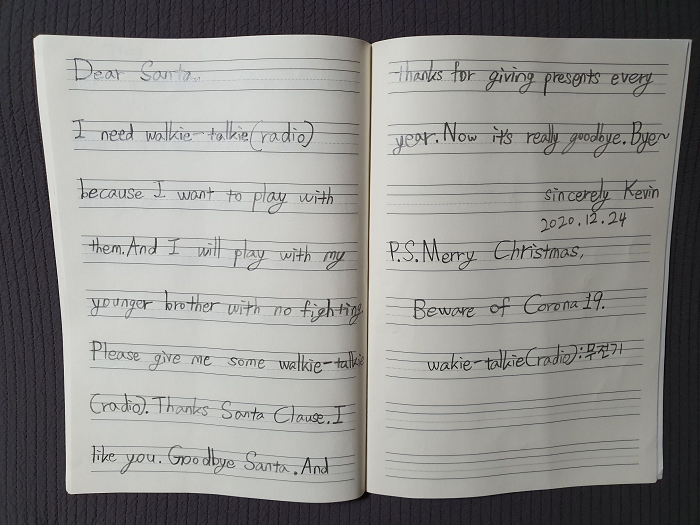 Dear Santa.
I need walkie-talkie(radio)
because I want to play with
them. And I will play with my
younger brother with no fighting.
Please give me some walkie-talkie
(radio). Thanks Santa Clause. I
like you. Goodbye Santa. And
thanks for giving presents every
year. Now it's really goodbye. Bye~
sincerely Kevin
2020.12.24
P.S. Merry Christmas,
Beware of Corona 19.
wakie-talkie(radio):무전기